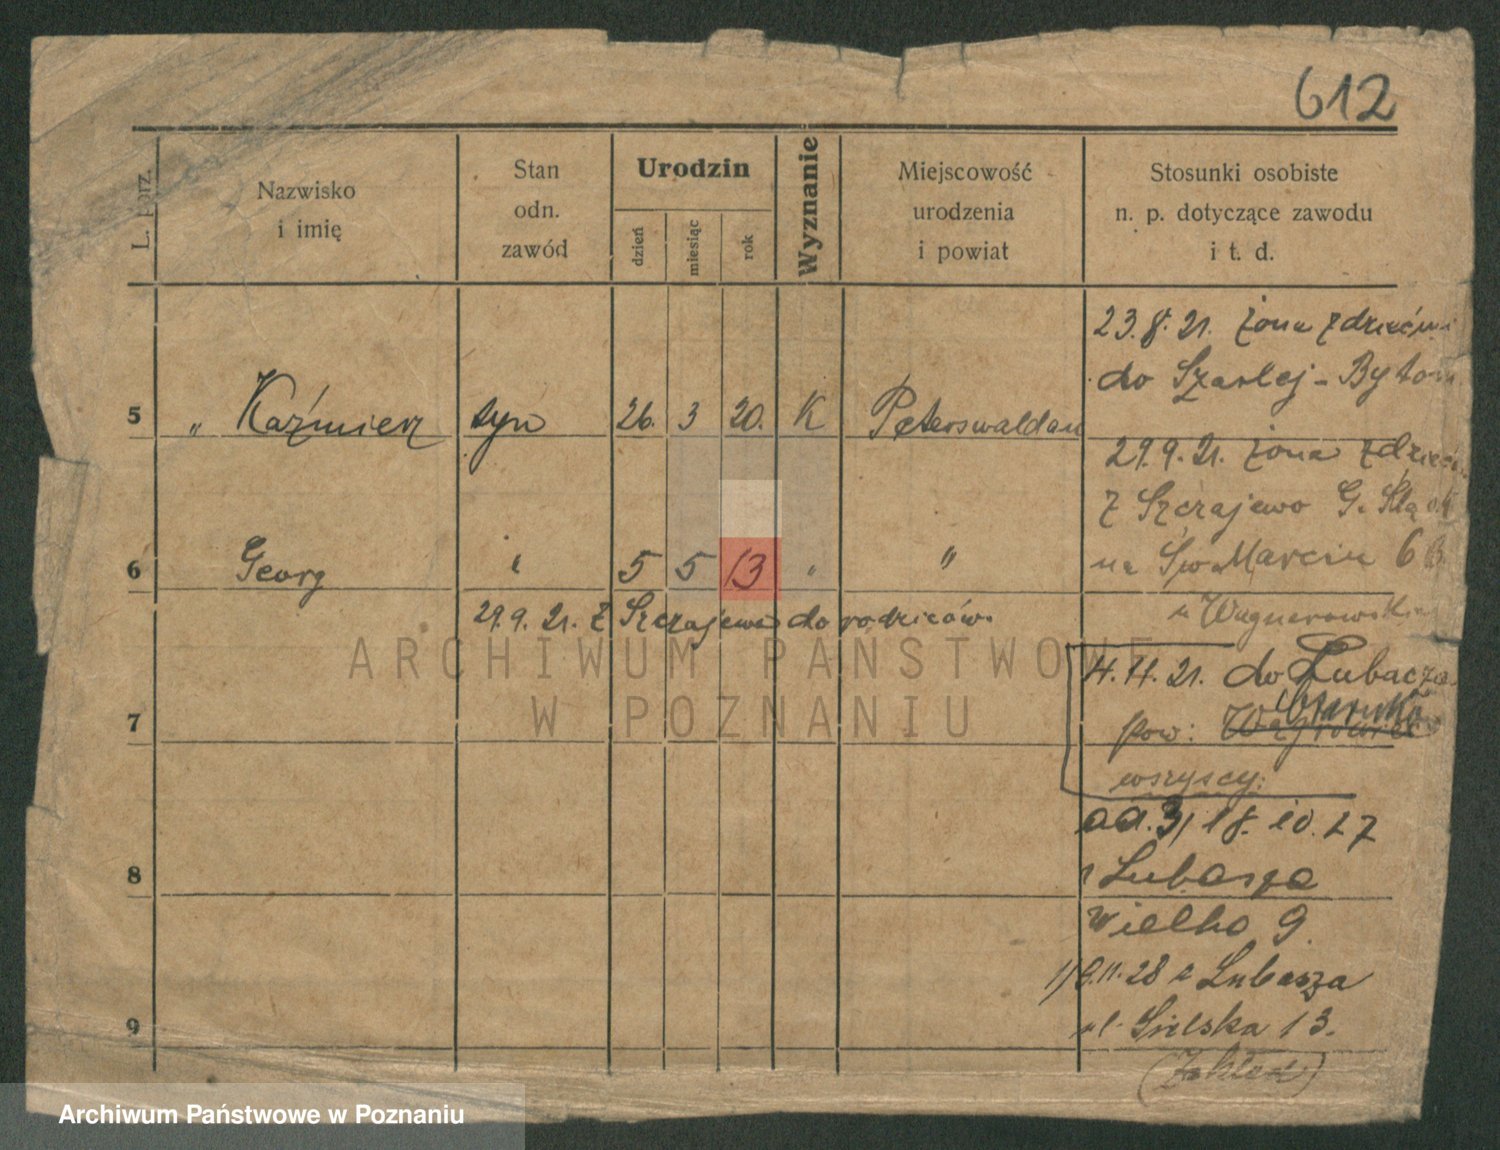 612
L. porz.
Nazwisko
i imię
Stan
odn.
zawód
Urodzin
dzień
miesiąc
rok
Wyznanie
Miejscowość
urodzenia
i powiat
Stosunki osobiste
n. p. dotyczące zawodu
i t. d.
23.8.21. żona z dziećmi
do Szarlej - Bytom
5 " Kaźmierz syn 26. 3 20. K Peterswaldau
29.9.21. żona z dziećmi
z Szczajewo G. Śląsk
6 Georg " 5 5 13 " "
na Św. Marcin 6
29.9.21. z Szczajewa do rodziców.
z Wagnerowski
ARCHIWUM PAŃSTWOWE
W POZNANIU
4.11.21. do Lubacza
7
pow:
wszyscy:
od. 3/18.10.27
8
z Lubasza
Wielka 9
19.11.28 z Lubasza
9
ul. Sielska 13.
Archiwum Państwowe w Poznaniu